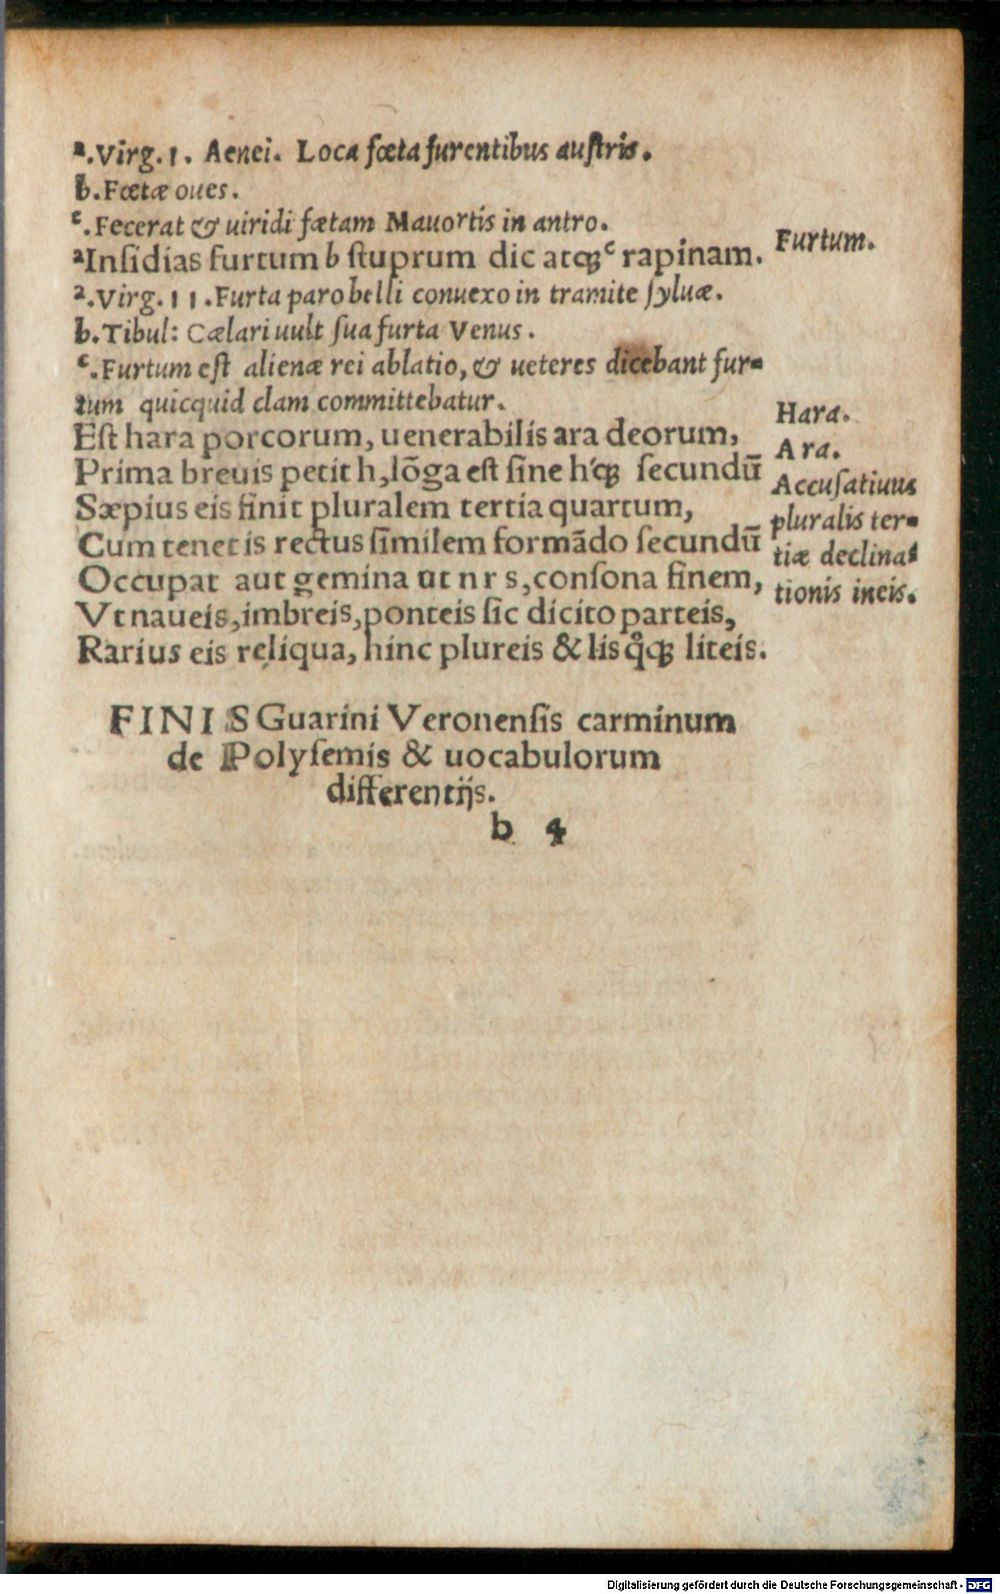 a.Virg. 1. Aenei. Loca fœta furentibus austris.
b.Fœtæ oues.
c.Fecerat & uiridi fætam Mauortis in antro.
aInsidias furtum b stuprum dic atqꝫ c rapinam.
Furtum.
a.Virg. 11.Furta paro belli conuexo in tramite syluæ.
b.Tibul: Cælari uult sua furta Venus.
c.Furtum est alienæ rei ablatio, & ueteres dicebant fur-
tum quicquid clam committebatur.
Est hara porcorum, uenerabilis ara deorum,
Hara.
Prima breuis petit h, lōga est sine h'qꝫ secundū
Ara.
Sæpius eis finit pluralem tertia quartum,
Accusatiuus
Cum tenet is rectus similem formādo secundū
pluralis ter-
Occupat aut gemina ut n r s, consona finem,
tiæ declina-
Vt naueis, imbreis, ponteis sic dicito parteis,
tionis in eis.
Rarius eis reliqua, hinc plureis & lis qͦqꝫ liteis.
FINIS Guarini Veronensis carminum
de Polysemis & uocabulorum
differentijs.
b 4
Digitalisierung gefördert durch die Deutsche Forschungsgemeinschaft - DFG